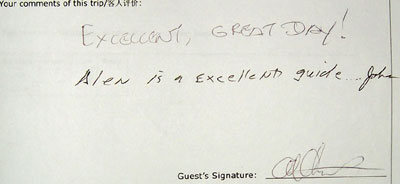 Your comments of this trip/客人评价:
EXCELLENT, GREAT DAY!
Alen is a Excellent guide... John
Guest's Signature: